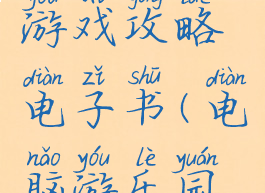 游戏攻略
diàn zǐ shū diàn
电子书(电
nǎo yóu lè yuán
脑游乐园